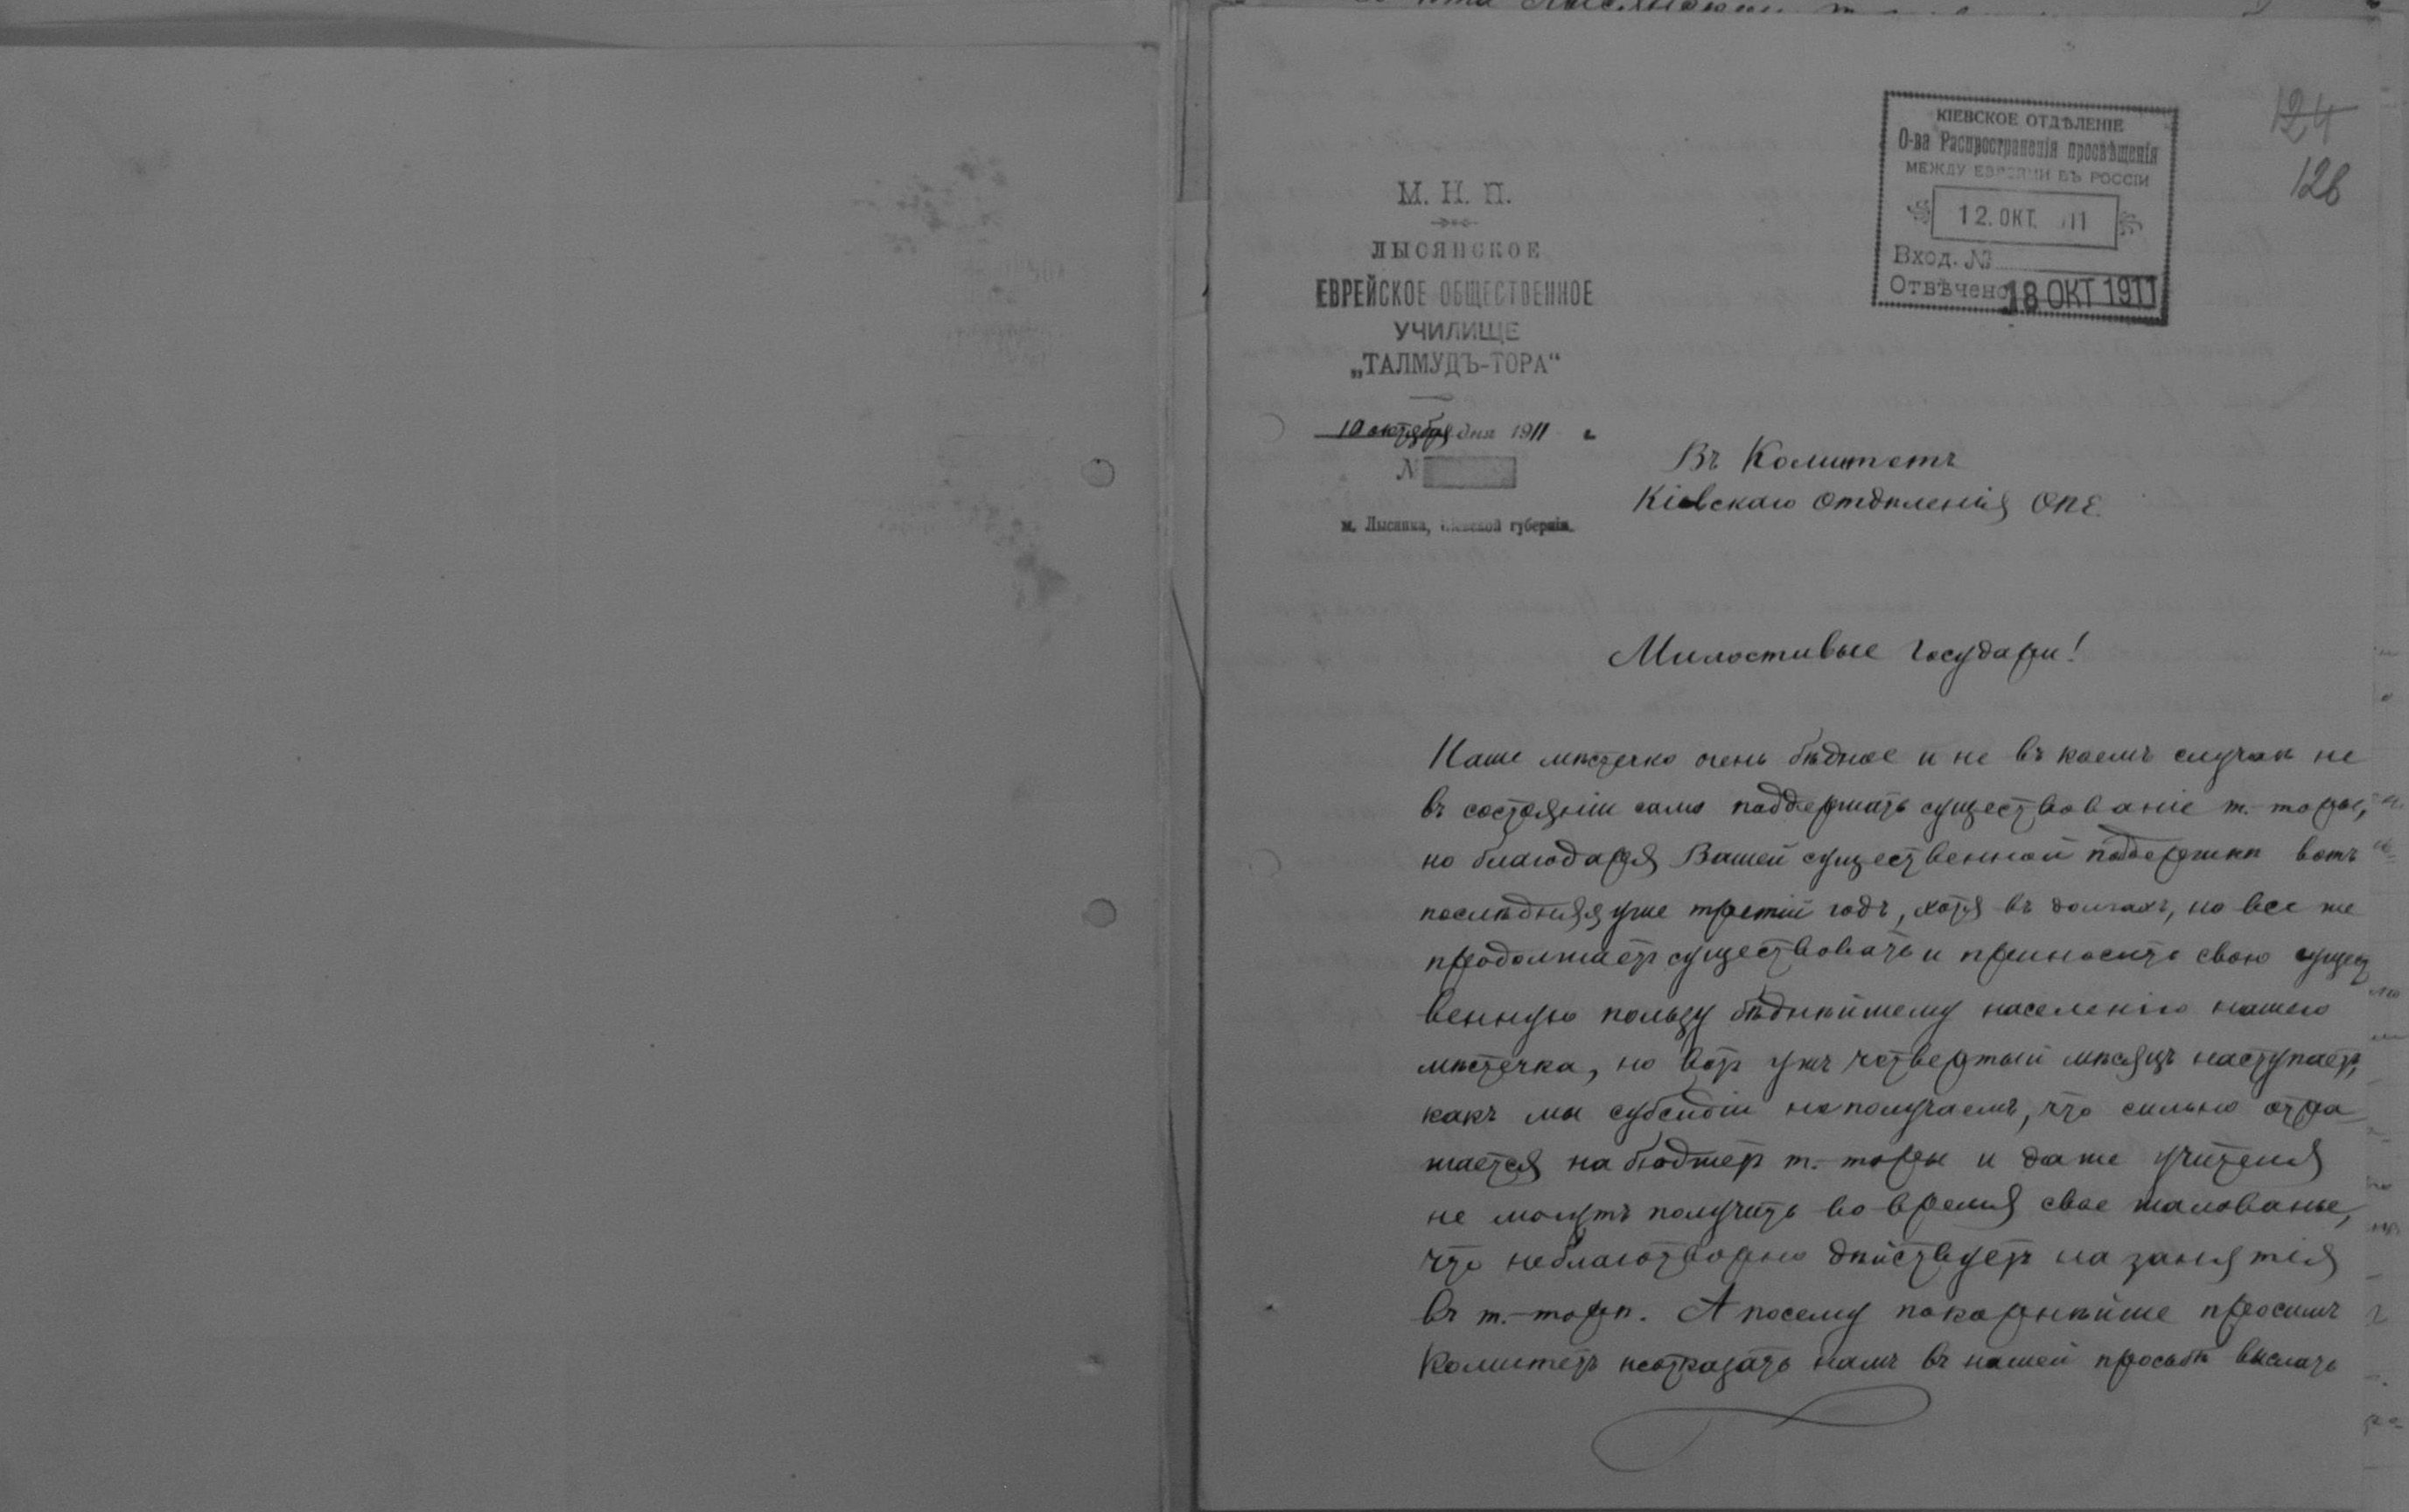 КІЕВСКОЕ ОТДѢЛЕНІЕ
О-ва Распространенія просвѣщенія
МЕЖДУ ЕВРЕЯМИ ВЪ РОССІИ
12. ОКТ. 11
Вход. №
Отвѣчено 18 ОКТ 1911
124
126
М. Н. П.
ЛЫСЯНСКОЕ
ЕВРЕЙСКОЕ ОБЩЕСТВЕННОЕ
УЧИЛИЩЕ
„ТАЛМУДЪ-ТОРА“
10 октября дня 1911 г.
№
м. Лысянка, Кіевской губерніи.
Въ Комитетъ
Кіевскаго отдѣленія ОПЕ.
Милостивые Государи!
Наше мѣстечко очень бѣдное и не въ коемъ случаѣ не
въ состояніи само поддержать существованіе т.-торы,
но благодаря Вашей существенной поддержкѣ вотъ
послѣдняя уже третій годъ, хотя въ долгахъ, но все же
продолжаетъ существовать и приносить свою сущест
венную пользу бѣднѣйшему населенію нашего
мѣстечка, но вотъ ужъ четвертый мѣсяцъ наступаетъ,
какъ мы субсидіи не получаемъ, что сильно отра-
жается на бюджетъ т.-торы и даже учителя
не могутъ получить во время свое жалованье,
что неблаготворно дѣйствуетъ на занятія
въ т.-торѣ. А посему покорнѣйше просимъ
Комитетъ неотказать намъ въ нашей просьбѣ выслать